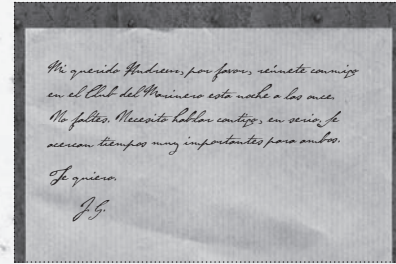 Mi querido Andrew, por favor, reúnete conmigo
en el Club del Marinero esta noche a las once.
No faltes. Necesito hablar contigo, en serio. Se
acercan tiempos muy importantes para ambos.
Te quiero.
J. G.